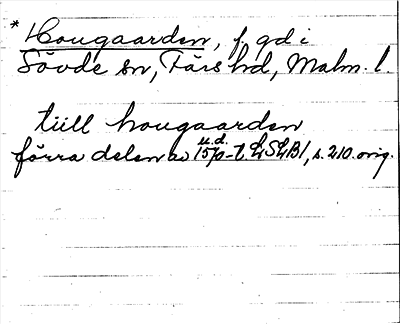 * Hougaarden, f. gd i
Sövde sn, Färs hd, Malm. l.
tiill hougaarden
förra delen av u.d. 1570-t. LSLB1, s. 210. orig.